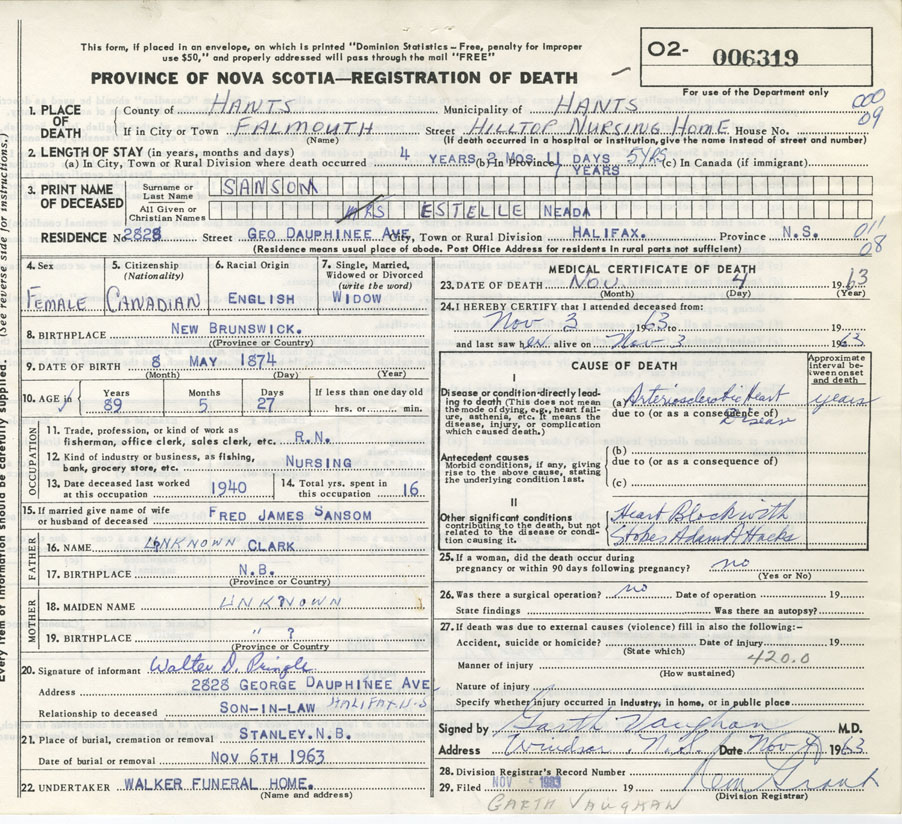 This form, if placed in an envelope, on which is printed "Dominion Statistics – Free, penalty for improper
use $50," and properly addressed will pass through the mail "FREE"
PROVINCE OF NOVA SCOTIA—REGISTRATION OF DEATH
O2- 006319
For use of the Department only
000
09
1. PLACE OF DEATH County of HANTS Municipality of HANTS
If in City or Town FALMOUTH Street HILLTOP NURSING HOME House No.
(Name) (If death occurred in a hospital or institution, give the name instead of street and number)
2. LENGTH OF STAY (in years, months and days)
(a) In City, Town or Rural Division where death occurred 4 YEARS 2 MOS 11 DAYS (b) in Province 5 YRS (c) In Canada (if immigrant)
YEARS
3. PRINT NAME OF DECEASED Surname or Last Name SANSOM
All Given or Christian Names MRS ESTELLE NEADA
RESIDENCE No. 2828 Street GEO DAUPHINEE AVE City, Town or Rural Division HALIFAX. Province N.S.
(Residence means usual place of abode. Post Office Address for residents in rural parts not sufficient)
011
08
4. Sex FEMALE
5. Citizenship (Nationality) CANADIAN
6. Racial Origin ENGLISH
7. Single, Married, Widowed or Divorced (write the word) WIDOW
8. BIRTHPLACE NEW BRUNSWICK.
(Province or Country)
9. DATE OF BIRTH 8 MAY 1874
(Month) (Day) (Year)
10. AGE in Years 89 Months 5 Days 27 If less than one day old hrs. or min.
OCCUPATION
11. Trade, profession, or kind of work as fisherman, office clerk, sales clerk, etc. R.N.
12. Kind of industry or business, as fishing, bank, grocery store, etc. NURSING
13. Date deceased last worked at this occupation 1940
14. Total yrs. spent in this occupation 16
15. If married give name of wife or husband of deceased FRED JAMES SANSOM
FATHER
16. NAME UNKNOWN CLARK
17. BIRTHPLACE N.B.
(Province or Country)
MOTHER
18. MAIDEN NAME UNKNOWN
19. BIRTHPLACE " ?
(Province or Country)
20. Signature of informant Walter D. Pringle
Address 2828 GEORGE DAUPHINEE AVE
HALIFAX N-S
Relationship to deceased SON-IN-LAW
21. Place of burial, cremation or removal STANLEY.N.B.
Date of burial or removal NOV 6TH 1963
22. UNDERTAKER WALKER FUNERAL HOME.
(Name and address)
MEDICAL CERTIFICATE OF DEATH
23. DATE OF DEATH Nov 4 1963
(Month) (Day) (Year)
24. I HEREBY CERTIFY that I attended deceased from:
Nov 3 1963 to 19
and last saw her alive on Nov 3 1963
CAUSE OF DEATH
Approximate interval between onset and death
I
Disease or condition directly leading to death (This does not mean the mode of dying, e.g., heart failure, asthenia, etc. It means the disease, injury, or complication which caused death.)
(a) Arteriosclerotic Heart Disease years
due to (or as a consequence of)
Antecedent causes
Morbid conditions, if any, giving rise to the above cause, stating the underlying condition last.
(b)
due to (or as a consequence of)
(c)
II
Other significant conditions
contributing to the death, but not related to the disease or condition causing it.
Heart Block with
Stokes Adam Attacks
25. If a woman, did the death occur during
pregnancy or within 90 days following pregnancy? no
(Yes or No)
26. Was there a surgical operation? no Date of operation 19
State findings Was there an autopsy?
27. If death was due to external causes (violence) fill in also the following:-
Accident, suicide or homicide? Date of injury 19
(State which)
420.0
Manner of injury
(How sustained)
Nature of injury
Specify whether injury occurred in industry, in home, or in public place
Signed by Garth Vaughan M.D.
Address Windsor, N.S. Date Nov 4 1963
28. Division Registrar's Record Number
29. Filed NOV 5 1963 19
(Division Registrar)
GARTH VAUGHAN
(See reverse side for instructions.)
Every item of information should be carefully supplied.